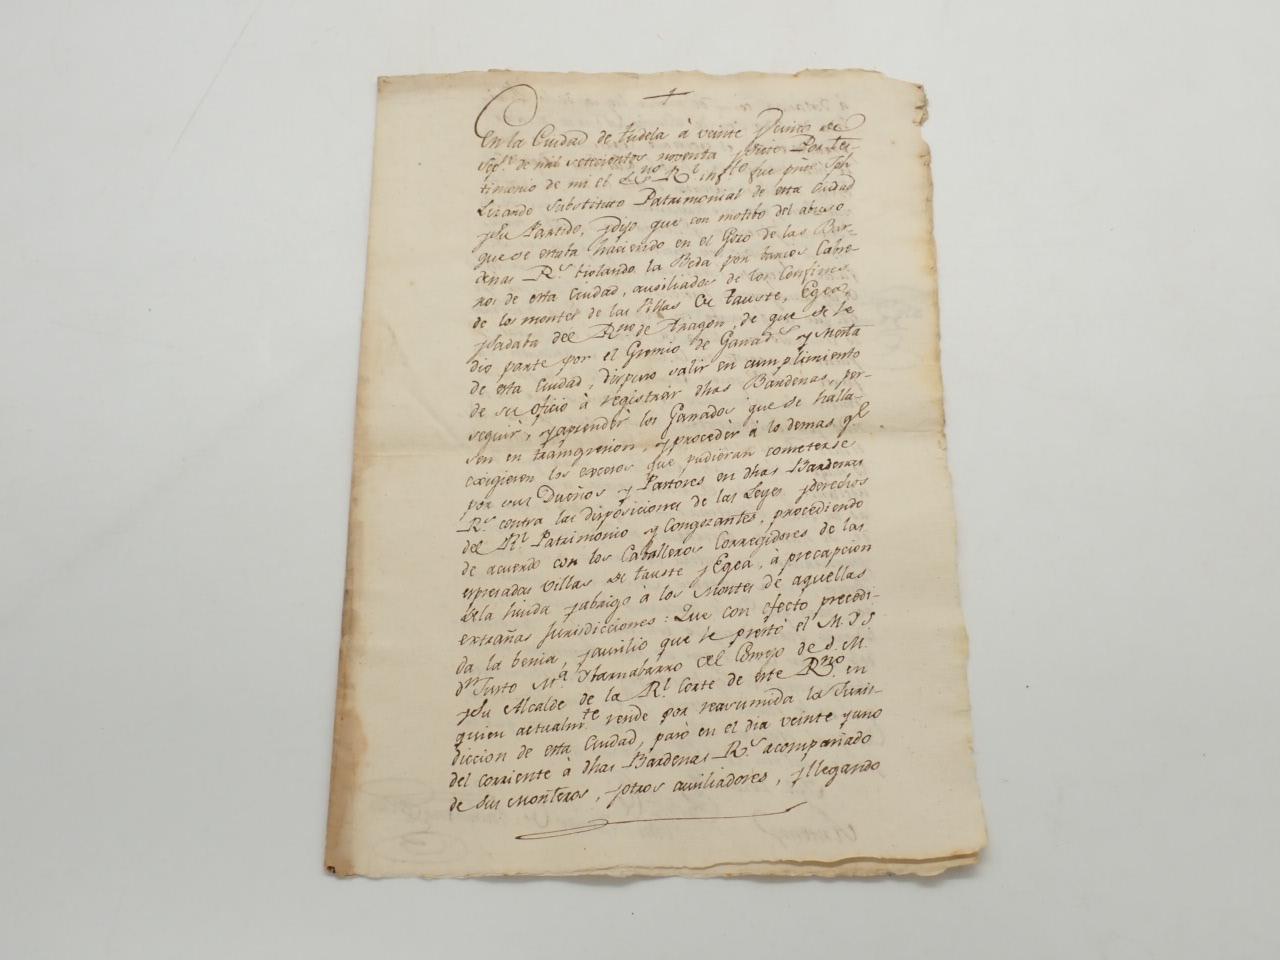 En la Ciudad de Tudela à veinte y cinco de
Sep.re de mil setecientos noventa y siete Por tes-
timonio de mi el Ess.no R.l infto fue pñte Jph
Lizando Substituto Patrimonial de esta Ciudad
y su Partido, y dijo que con motibo del abuso
que se estata haciendo en el Gozo de las Bar-
denas R.s biolando la Beda por barios Cabre-
ros de esta Ciudad, auxiliados de los Confines
de los montes de las Villas de Tauste, Egea
y Sadaba del R.no de Aragon, de que se le
dio parte por el Gremio de Ganad.s y Mesta
de esta Ciudad, dispuso salir en cumplimiento
de su oficio à registrar dhas Bardenas, per-
seguir, y aprender los Ganados que se halla-
sen en transgresion, y proceder à lo demas q.e
exigiesen los excesos que pudieran cometerse
por sus Dueños y Pastores en dhas Bardenas
R.s contra las disposiciones de las Leyes y derechos
del R.l Patrimonio y Congozantes, procediendo
de acuerdo con los Caballeros Corregidores de las
espresadas Villas de Tauste y Egea, à precapcion
de la huida y abrigo à los Montes de aquellas
extrañas Jurisdicciones: Que con efecto precedi-
da la benia, y auxilio que le prestò el M. I. S.
d.n Justo M.a Ybarnabarro del Consejo de S. M.
y su Alcalde de la R.l Corte de este R.no en
quien actualm.te rende por reasumida la Juris-
diccion de esta Ciudad, pasò en el dia veinte y uno
del corriente à dhas Bardenas R.s acompañado
de sus Monteros, y otros auxiliadores, y llegando